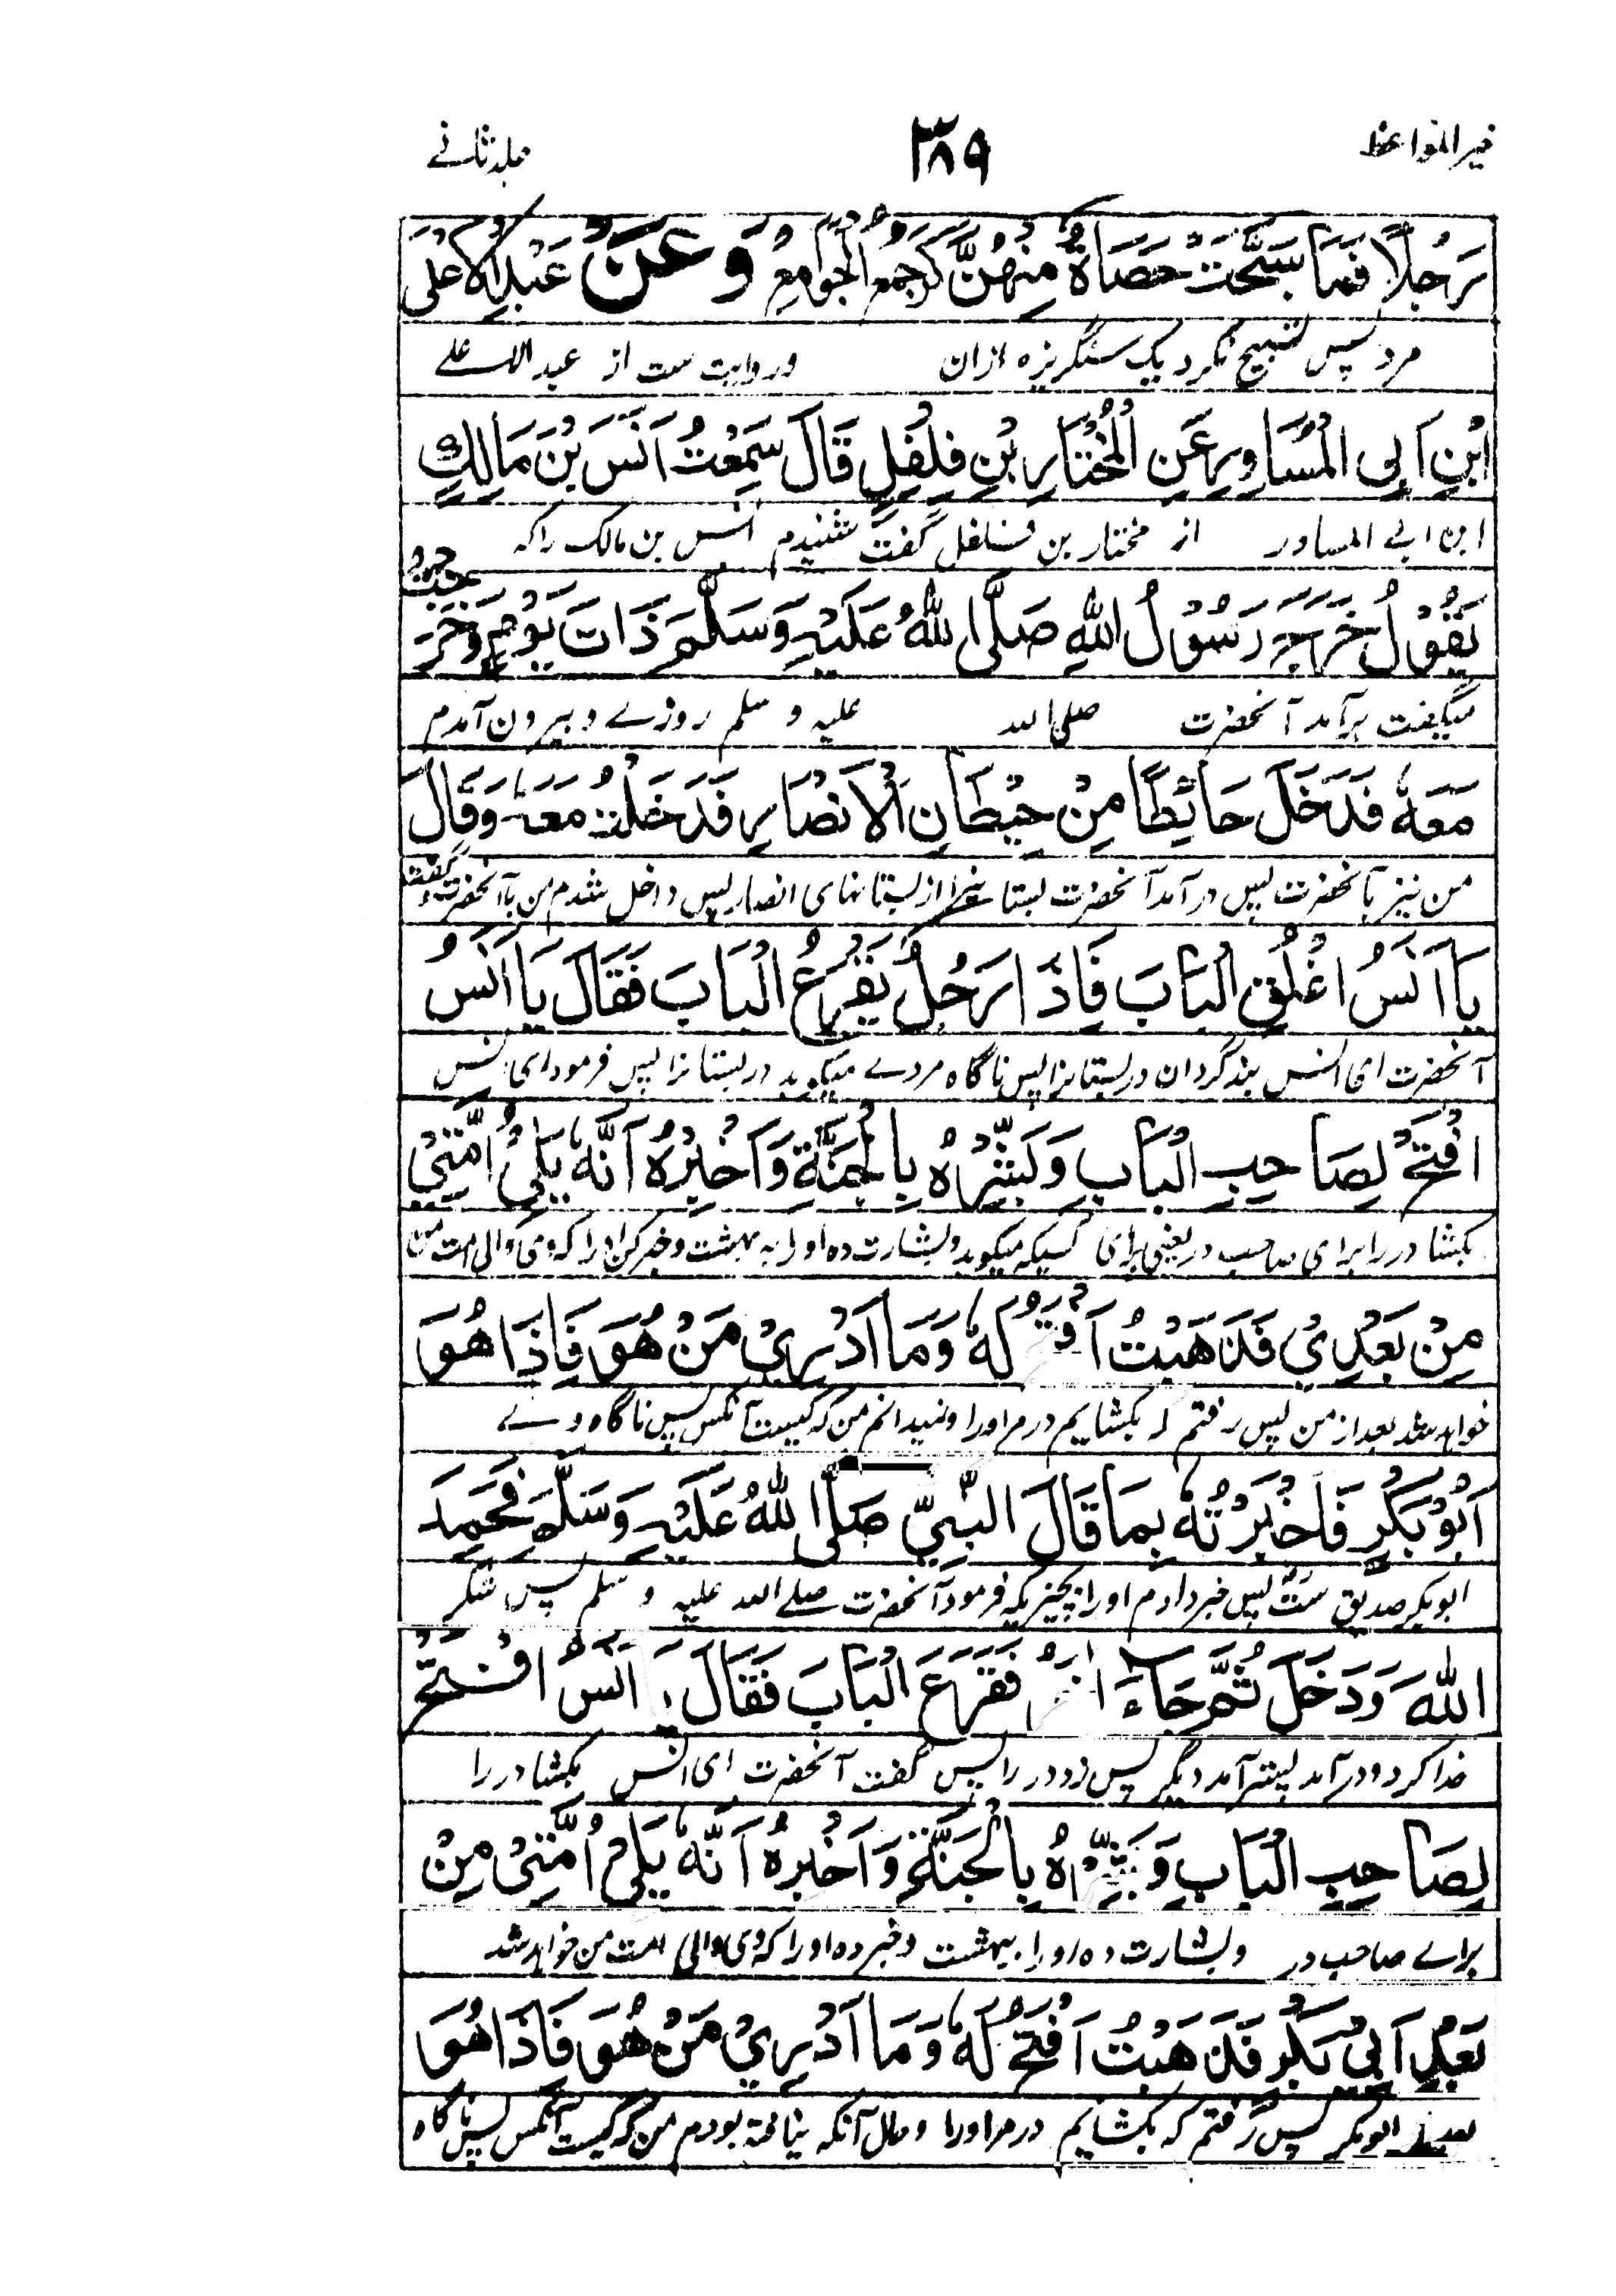 خیر المواعظ
۳۸۹
جلد ثانے
رَجُلًا فَمَا سَبَّحَتْ حَصَاةٌ مِنْهُنَّ كَرجمع الجوامع وَعَنْ عَبْدِ الْاَعْلٰی
مرد پس تسبیح نکرد یک سنگریزه ازان وروایت ست از عبد الاعلے
ابْنِ اَبِی الْمُسَاوِرِ عَنِ الْمُخْتَارِ بْنِ فُلْفُلٍ قَالَ سَمِعْتُ اَنَسَ بْنَ مَالِكٍ
ابن ابے المساور از مختار بن فلفل گفت شنیدم انس بن مالک راکہ
يَقُوْلُ خَرَجَ رَسُوْلُ اللّٰهِ صَلَّی اللّٰهُ عَلَيْهِ وَسَلَّمَ ذَاتَ يَوْمٍ وَخَرَجْتُ
میگفت برآمد آنحضرت صلی اللہ علیہ و سلم روزے و بیرون آمدم
مَعَهٗ فَدَخَلَ حَائِطًا مِنْ حِيْطَانِ الْاَنْصَارِ فَدَخَلْتُ مَعَهٗ وَقَالَ
من نیز بآنحضرت پس درآمد آنحضرت بستانے را از بستانهای انصار پس داخل شدم من باآنحضرت وگفت
يَا اَنَسُ اغْلُقِ الْبَابَ فَاِذَا رَجُلٌ يَقْرَعُ الْبَابَ فَقَالَ يَا اَنَسُ
آنحضرت ای انس بند گردان در بستانرا پس ناگاه مردے میکوبد در بستانرا پس فرمود ای انس
افْتَحْ لِصَاحِبِ الْبَابِ وَبَشِّرْهُ بِالْجَنَّةِ وَاَخْبِرْهُ اَنَّهٗ يَلِیْ اُمَّتِیْ
بکشا در را برای صاحب در یعنی برای کسیکہ میکوبد وبشارت ده او را به بهشت و خبر کن او را که وی والی امت من
مِنْ بَعْدِیْ فَذَهَبْتُ اَفْتَحُ لَهٗ وَمَا اَدْرِیْ مَنْ هُوَ فَاِذَا هُوَ
خواهد شد بعد از من پس رفتم کہ بکشایم در مر او را ونمیدانم من کہ کیست آنکس پس ناگاه وے
اَبُوْ بَكْرٍ فَاَخْبَرْتُهٗ بِمَا قَالَ النَّبِیُّ صَلَّی اللّٰهُ عَلَيْهِ وَسَلَّمَ فَحَمِدَ
ابوبکر صدیق ست پس خبر دادم او را بچیزیکہ فرمود آنحضرت صلے اللہ علیہ و سلم پس شکر
اللّٰهَ وَدَخَلَ ثُمَّ جَاءَ اٰخَرُ فَقَرَعَ الْبَابَ فَقَالَ يَا اَنَسُ افْتَحْ
خدا کرد و درآمد پستر آمد دیگر پس زد در را پس گفت آنحضرت ای انس بکشا در را
لِصَاحِبِ الْبَابِ وَبَشِّرْهُ بِالْجَنَّةِ وَاَخْبِرْهُ اَنَّهٗ يَلِیْ اُمَّتِیْ مِنْ
براے صاحب در وبشارت ده او را ببهشت وخبر ده او را کہ وی والی امت من خواهد شد
بَعْدِ اَبِیْ بَكْرٍ فَذَهَبْتُ اَفْتَحُ لَهٗ وَمَا اَدْرِیْ مَنْ هُوَ فَاِذَا هُوَ
بعد ابوبکر پس رفتم کہ بکشایم در مر او را وحال آنکہ نیافتہ بودم من کہ کیست آنکس پس ناگاه